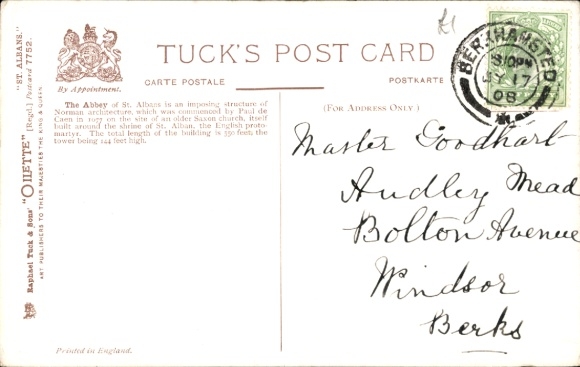 £1
TUCK'S POST CARD
CARTE POSTALE
POSTKARTE
By Appointment.
"ST. ALBANS."
"OILETTE" (Regd.) Postcard 7752.
Raphael Tuck & Sons'
ART PUBLISHERS TO THEIR MAJESTIES THE KING & QUEEN
The Abbey of St. Albans is an imposing structure of
Norman architecture, which was commenced by Paul de
Caen in 1077 on the site of an older Saxon church, itself
built around the shrine of St. Alban, the English proto-
martyr. The total length of the building is 550 feet; the
tower being 144 feet high.
Printed in England.
(FOR ADDRESS ONLY)
BERKHAMSTED
810PM
JY 17
08
Master Goodhart
Audley Mead
Bolton Avenue
Windsor
Berks